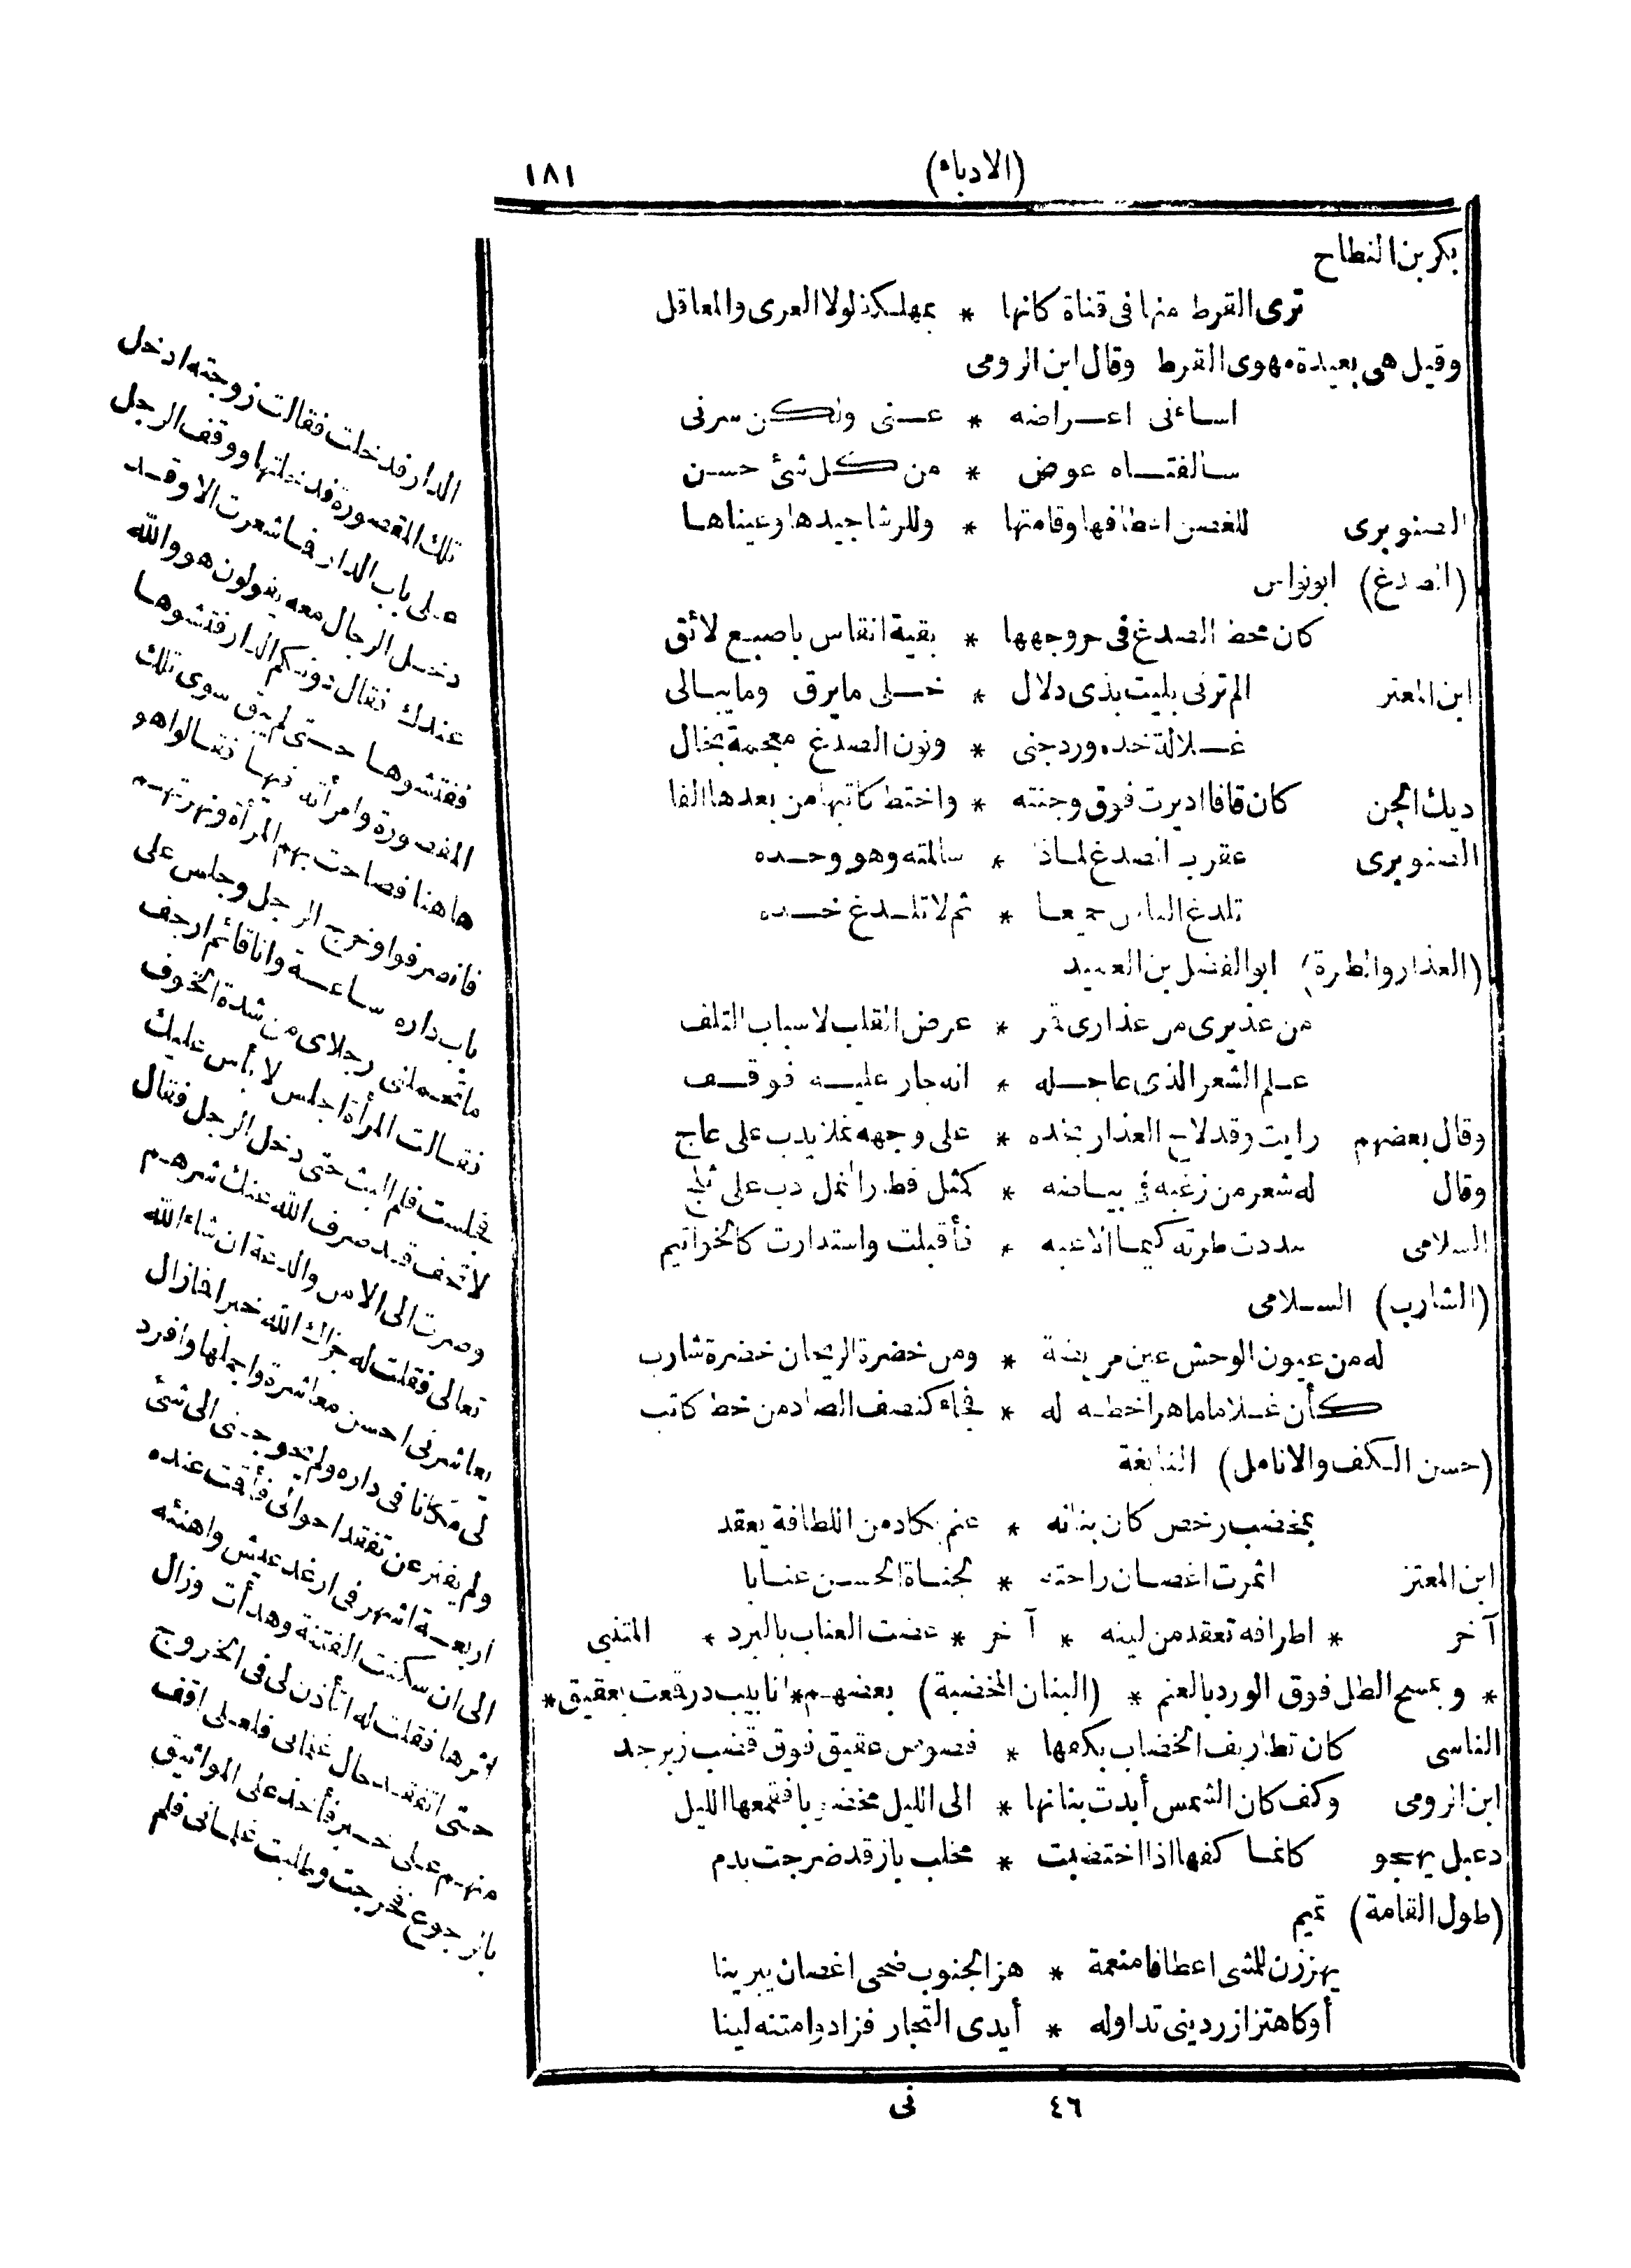 (الادباء) ١٨١
بكر بن النطاح
ترى القرط منها فى قناة كانها * بمهلكة لولا العرى والمعاقل
وقيل هى بعيدة مهوى القرط وقال ابن الرومى
اساءنى اعراضه * عنى ولكن سرنى
سالفتاه عوض * من كل شئ حسن
الصنوبرى للغصن اعطافها وقامتها * وللرشا جيدها وعيناها
(الصدغ) ابو نواس
كان مخط الصدغ فى حر وجهها * بقية انقاس باصبع لائق
ابن المعتز الم ترنى بليت بذى دلال * خلى ما يرق وما يبالى
غلالة خده ورد جنى * ونون الصدغ معجمة بخال
ديك الجن كان قافا اديرت فوق وجنته * واختط كاتبها من بعدها الفا
الصنوبرى عقرب الصدغ لماذا * سالمته وهو وحده
تلدغ الناس جميعا * ثم لا تلدغ خده
(العذار والطرة) ابو الفضل بن العميد
من عذيرى من عذارى قمر * عرض القلب لاسباب التلف
علم الشعر الذى عاجله * انه جار عليه فوقف
وقال بعضهم رايت وقد لاح العذار بخده * على وجهه نملا يدب على عاج
وقال له شعر من زغبه فى بياضه * كمثل قطرا نمل دب على ثلج
السلامى سددت طرته كيما الاعبه * فأقبلت واستدارت كالخواتيم
(الشارب) السلامى
له من عيون الوحش عين مريضة * ومن خضرة الريحان خضرة شارب
كأن غلاما ماهرا خطه له * فجاء كنصف الصاد من خط كاتب
(حسن الكف والانامل) النابغة
بمخضب رخص كان بنانه * عنم يكاد من اللطافة يعقد
ابن المعتز اثمرت اغصان راحته * لجناة الحسن عنابا
آخر * اطرافه تعقد من لينه * آخر * عضت العناب بالبرد * المتنبى
* وتمسح الطل فوق الورد بالعنم * (البنان المخضبة) بعضهم * انابيب در قمعت بعقيق *
الناسى كان تطاريف الخضاب بكفها * فصوص عقيق فوق قضب زبرجد
ابن الرومى وكف كان الشمس أبدت بنانها * الى الليل مخضوبا فقمعها الليل
دعبل يهجو كانما كفها اذا اختضبت * مخلب باز قد ضرجت بدم
(طول القامة) تميم
يهززن للمشى اعطافا منعمة * هز الجنوب ضحى اغصان يبرينا
أو كاهتزاز ردينى تداوله * أيدى التجار فزادوا متنه لينا
٤٦ فى
الدار فدخلت فقالت زوجته ادخل
تلك المقصورة فدخلتها ووقف الرجل
على باب الدار فما شعرت الا وقد
دخل الرجال معه يقولون هو والله
عندك فقال دونكم الدار فتشوها
ففتشوها حتى لم يبق سوى تلك
المقصورة وامرأته فيها فقالوا هو
هاهنا فصاحت بهم المرأة ونهرتهم
فانصرفوا وخرج الرجل وجلس على
باب داره ساعة وانا قائم ارجف
ما تحملنى رجلاى من شدة الخوف
فقالت المرأة اجلس لا بأس عليك
فجلست فلم البث حتى دخل الرجل فقال
لا تخف قد صرف الله عنك شرهم
وصرت الى الامن والدعة ان شاء الله
تعالى فقلت له جزاك الله خيرا فما زال
يعاشرنى احسن معاشرة واجملها وافرد
لى مكانا فى داره ولم يحوجنى الى شئ
ولم يفتر عن تفقد احوالى فأقمت عنده
اربعة اشهر فى ارغد عيش واهنئه
الى ان سكنت الفتنة وهدأت وزال
اثرها فقلت له اتأذن لى فى الخروج
حتى اتفقد حال غلمانى فلعلى اقف
منهم على خبر فأخذ على المواثيق
بالرجوع فخرجت وطلبت غلمانى فلم